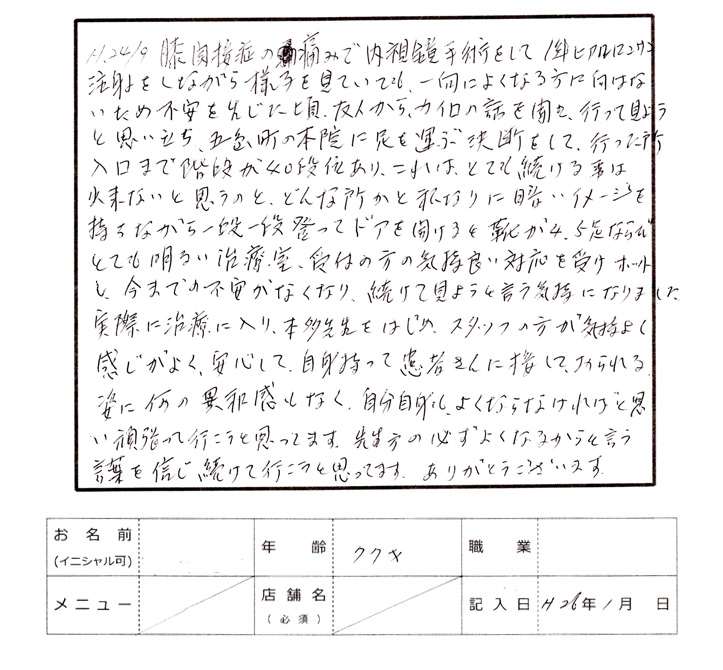 H.24/9 膝関接症の痛みで内視鏡手術をして1年ヒアルロンサン
注射をしながら様子を見ていても、一向によくなる方に向はな
いため不安を先じた頃、友人から、カイロの話を聞き、行って見よう
と思い立ち、五条町の本院に足を運ぶ決断をして、行った所
入口まで階段が40段位あり、これは、とても続ける事は
出来ないと思うのと、どんな所かと私なりに暗いイメージを
持ちながら一段一段登ってドアを開けると靴が4、5足ならび
とても明るい治療室、受付の方の気持良い対応を受けホット
し、今までの不安がなくなり、続けて見ようと言う気持になりました
実際に治療に入り、本多先生をはじめ、スタッフの方が気持よく
感じがよく、安心して、自身持って患者さんに接して、おられる
姿に何の異和感もなく、自分自身も、よくならなければと思
い頑張って行こうと思ってます。先生方の必ずよくなるからと言う
言葉を信じ続けて行こうと思ってます。ありがとうございます。
お名前
(イニシャル可)
年 齢 77才 職 業
メニュー 店舗名
(必須)
記入日 H26年1月 日